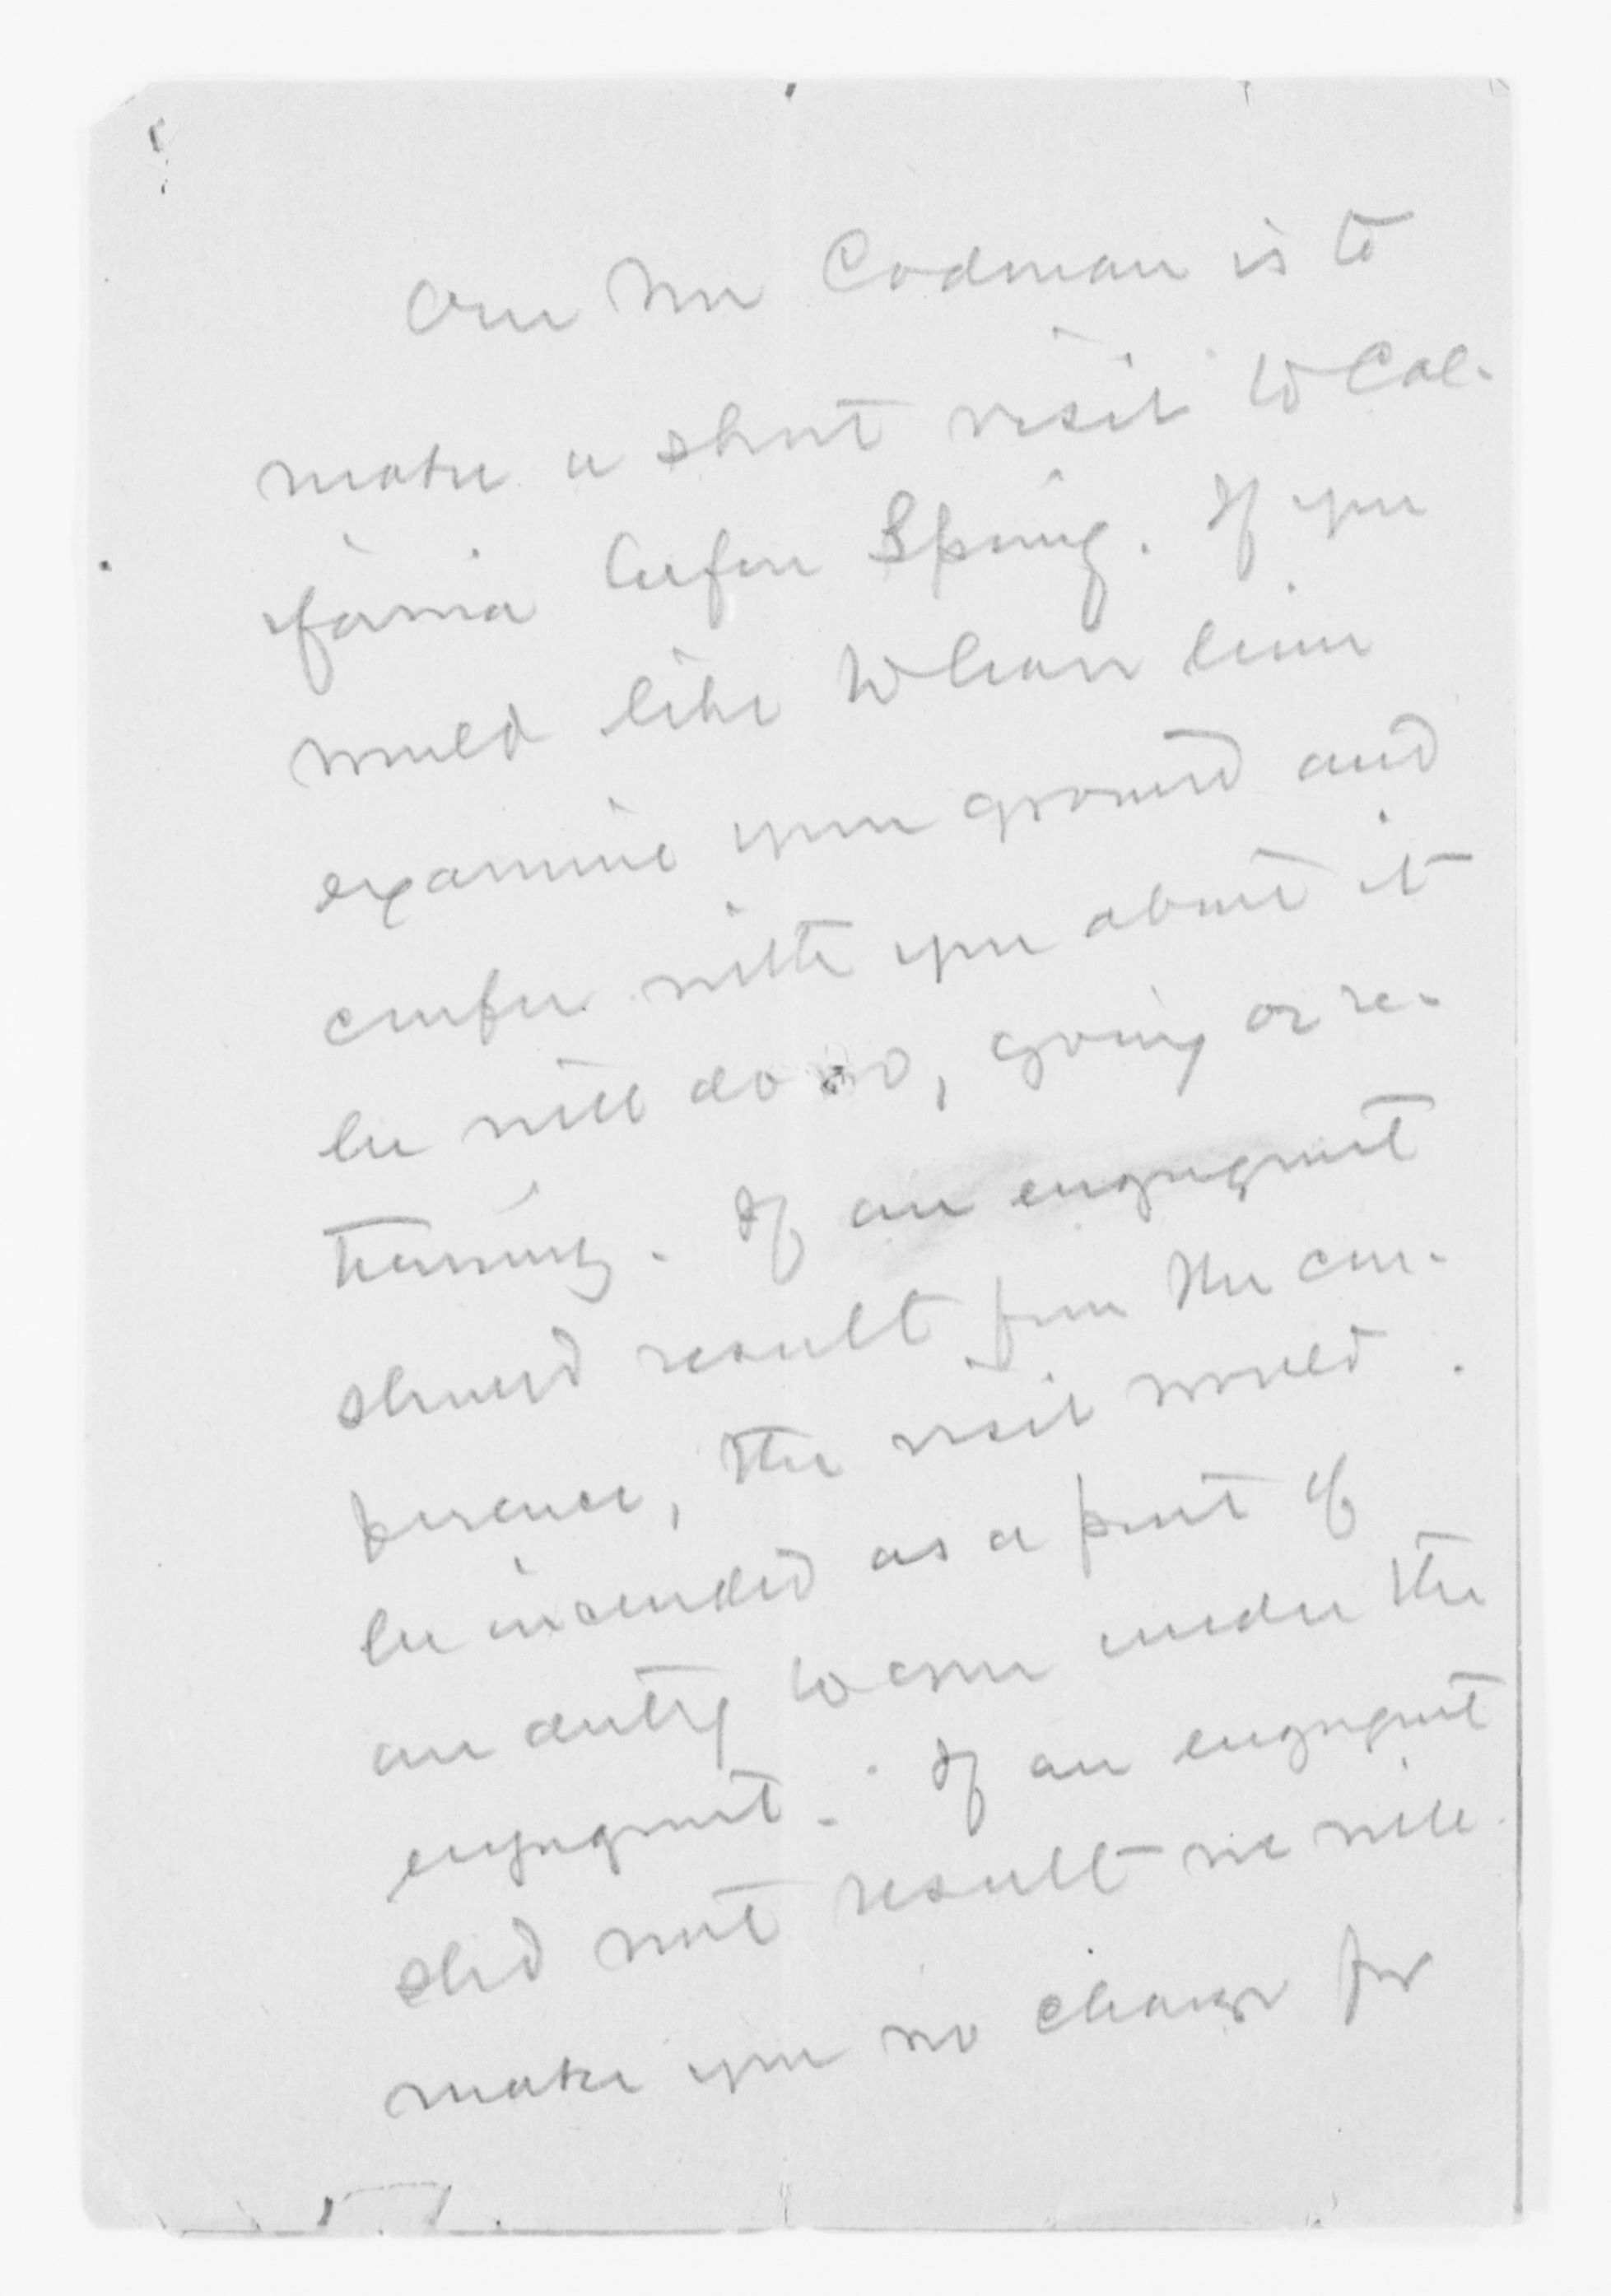 Our Mr Codman is to
make a short visit to Cal-
ifornia before Spring. If you
would like to have him
examine your ground and
confer with you about it
he will do so, going or re-
turning. If an engagement
should result from the con-
ference, the visit would
be included as a part of
our duty to come under the
engagement. If an engagement
shd not result we will
make you no charge for